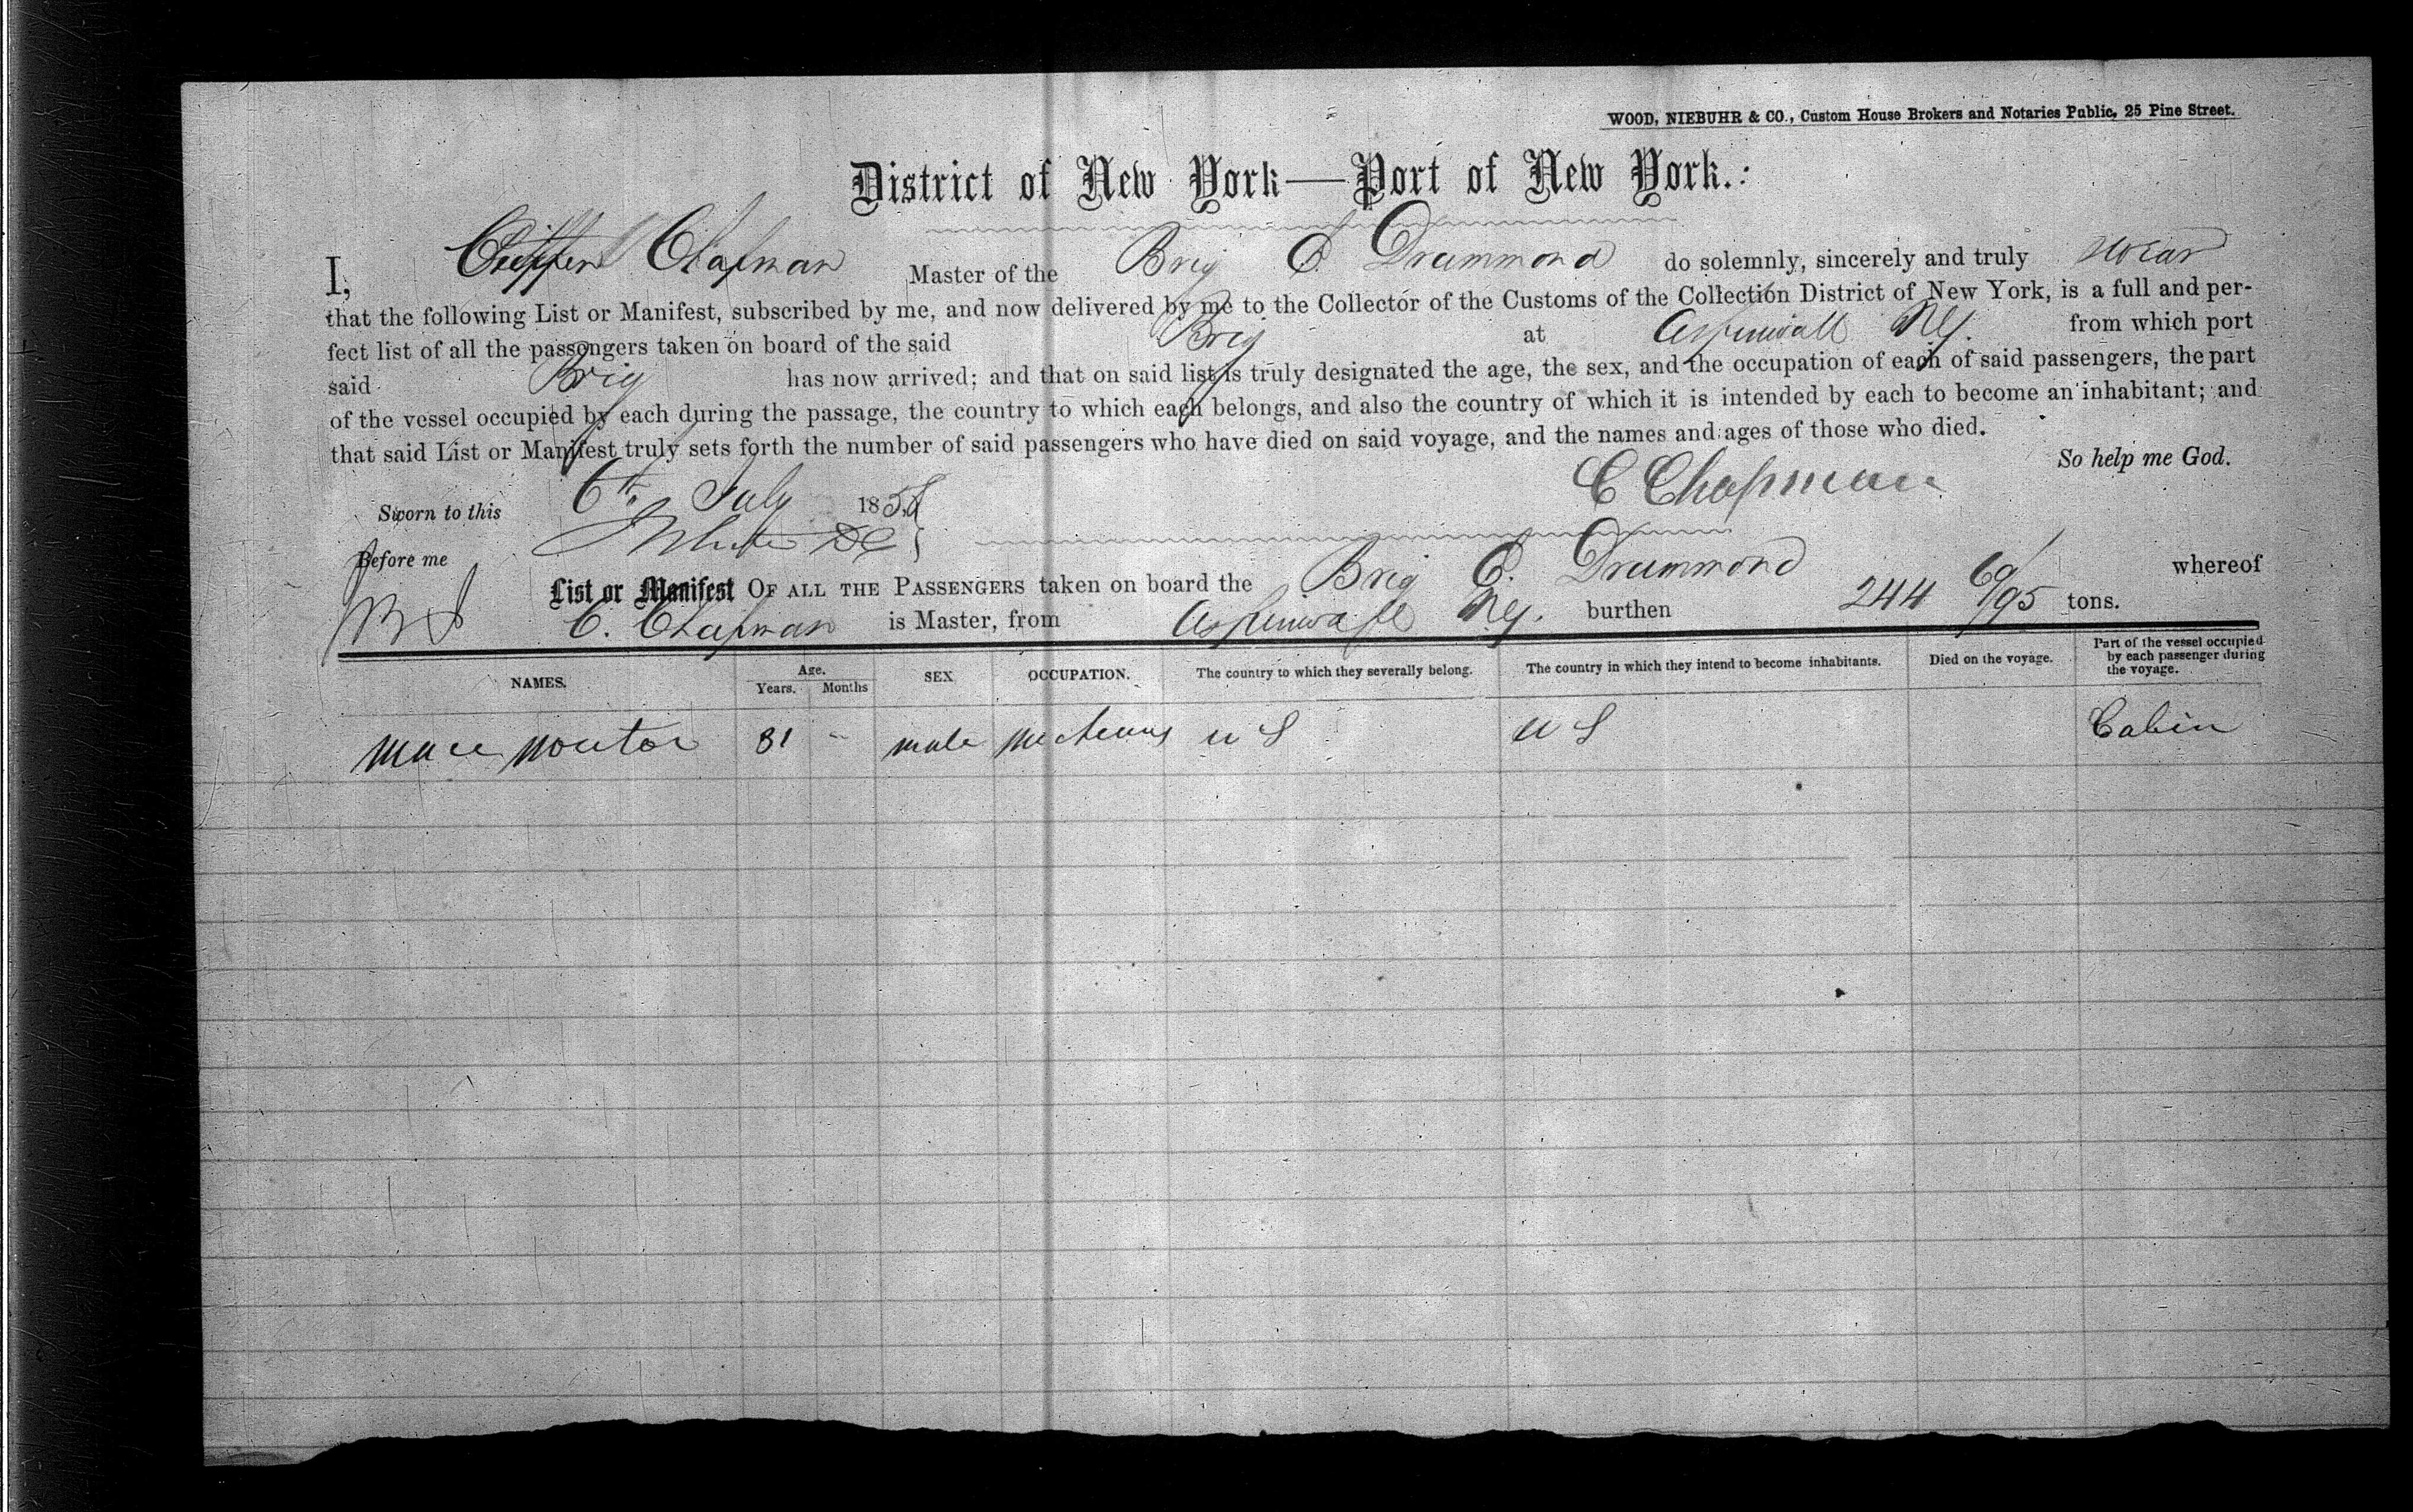 WOOD, NIEBUHR & CO., Custom House Brokers and Notaries Public, 25 Pine Street.
District of New York—Port of New York.:
I, Chapman Master of the Brig C. Drummond do solemnly, sincerely and truly swear
that the following List or Manifest, subscribed by me, and now delivered by me to the Collector of the Customs of the Collection District of New York, is a full and per-
fect list of all the passengers taken on board of the said Brig at Aspinwall NG. from which port
said Brig has now arrived; and that on said list is truly designated the age, the sex, and the occupation of each of said passengers, the part
of the vessel occupied by each during the passage, the country to which each belongs, and also the country of which it is intended by each to become an inhabitant; and
that said List or Manifest truly sets forth the number of said passengers who have died on said voyage, and the names and ages of those who died.
So help me God.
Sworn to this 6th July 1858 C Chapman
Before me
List or Manifest OF ALL THE PASSENGERS taken on board the Brig C. Drummond whereof
C. Chapman is Master, from Aspinwall NG. burthen 244 61/95 tons.
NAMES. Age. Years. Months SEX OCCUPATION. The country to which they severally belong. The country in which they intend to become inhabitants. Died on the voyage. Part of the vessel occupied by each passenger during the voyage.
31 male U S U S Cabin